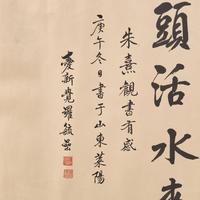 頭活水来
朱熹觀書有感
庚午冬日書于山東萊陽
愛新覺羅毓嵒